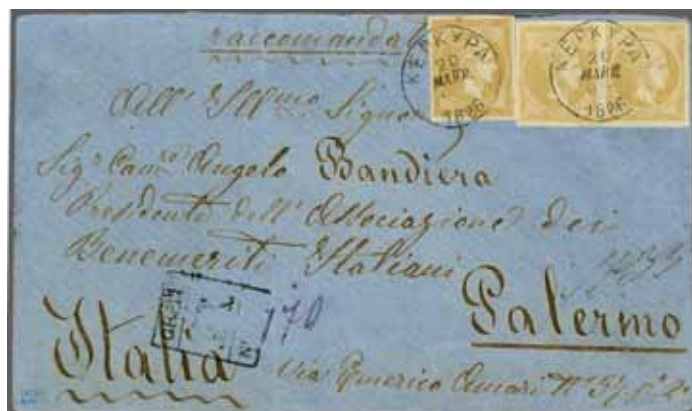 raccomandata
ΚΕΡΚΥΡΑ
20
ΜΑΡΤ
1886
ΚΕΡΚΥΡΑ
20
ΜΑΡΤ
1886
All' Illmo Signor
Sigr Cavre Angelo Bandiera
Presidente dell' Associazione dei
Benemeriti Italiani
Palermo
170
Italia
via Emerico Amari No